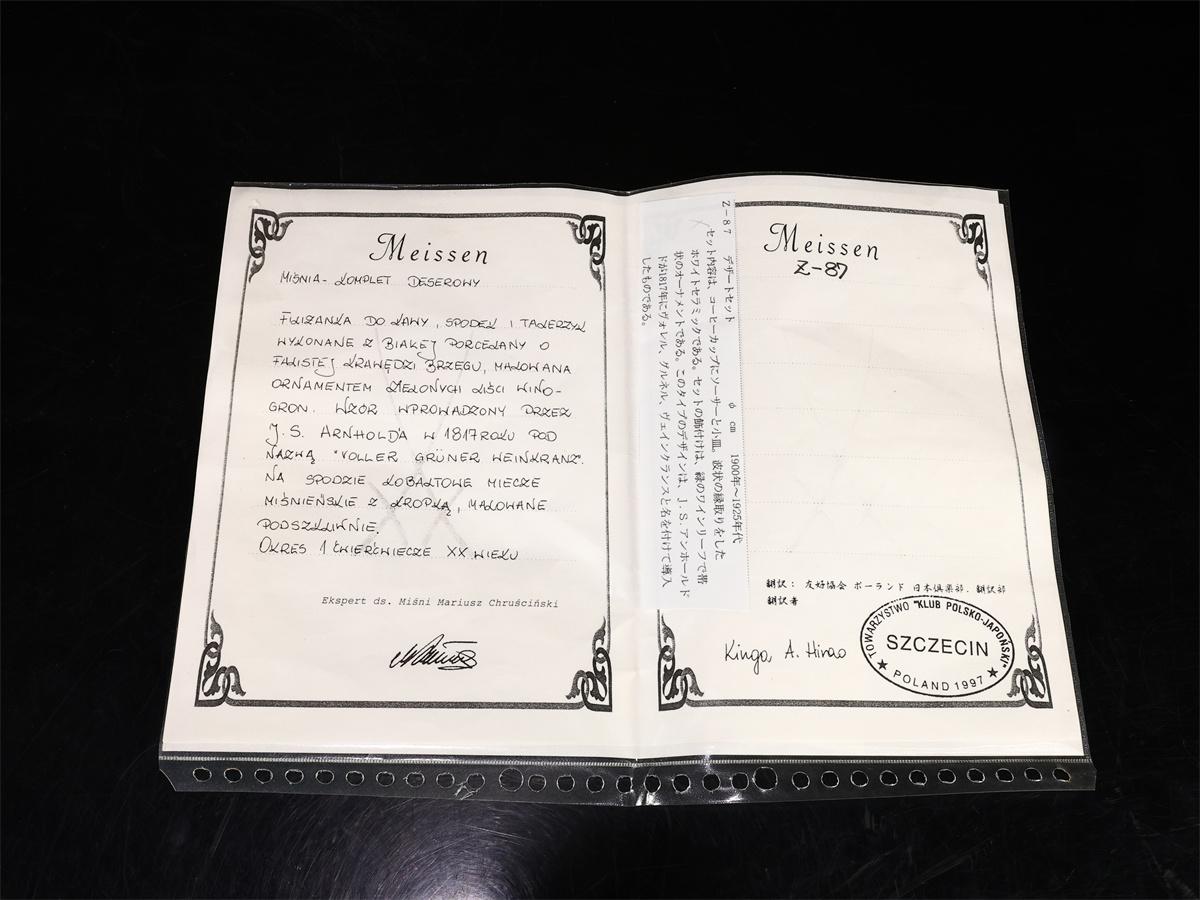 Meissen
MIŚNIA - KOMPLET DESEROWY
FILIŻANKA DO KAWY, SPODEK I TALERZYK
WYKONANE Z BIAŁEJ PORCELANY O
FALISTEJ KRAWĘDZI BRZEGU, MALOWANA
ORNAMENTEM ZIELONYCH LIŚCI WINO-
GRON. WZÓR WPROWADZONY PRZEZ
J.S. ARNHOLDA W 1817 ROKU POD
NAZWĄ "VOLLER GRÜNER WEINKRANZ".
NA SPODZIE KOBALTOWE MIECZE
MIŚNIEŃSKIE Z KROPKĄ, MALOWANE
PODSZKLIWNIE.
OKRES 1 ĆWIERĆWIECZE XX WIEKU
Ekspert ds. Miśni Mariusz Chruściński
Z-87 デザートセット φ cm 1900年~1925年代
セット内容は、コーヒーカップにソーサーと小皿。波状の縁取りをした
ホワイトセラミックである。セットの飾付けは、緑のワインリーフで帯
状のオーナメントである。このタイプのデザインは、J.S.アンホールド
ドが1817年にヴォレル、グルネル、ヴェインクランスと名を付けて導入
したものである。
Meissen
Z-87
翻訳: 友好協会 ポーランド 日本倶楽部. 翻訳部
翻訳者
Kinga A. Hirao
TOWARZYSTWO "KLUB POLSKO-JAPOŃSKI"
SZCZECIN
★ POLAND 1997 ★